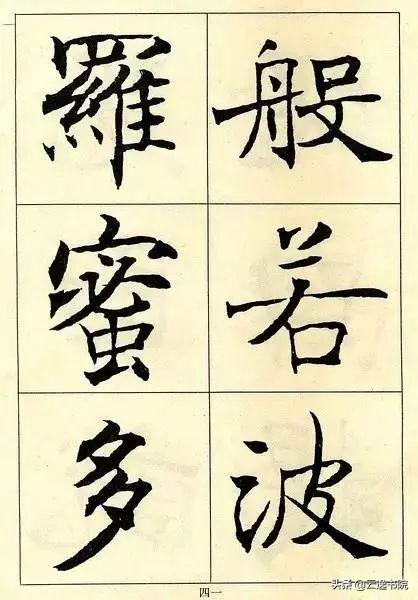 般若波
羅蜜多
四一
头条@云逸书院